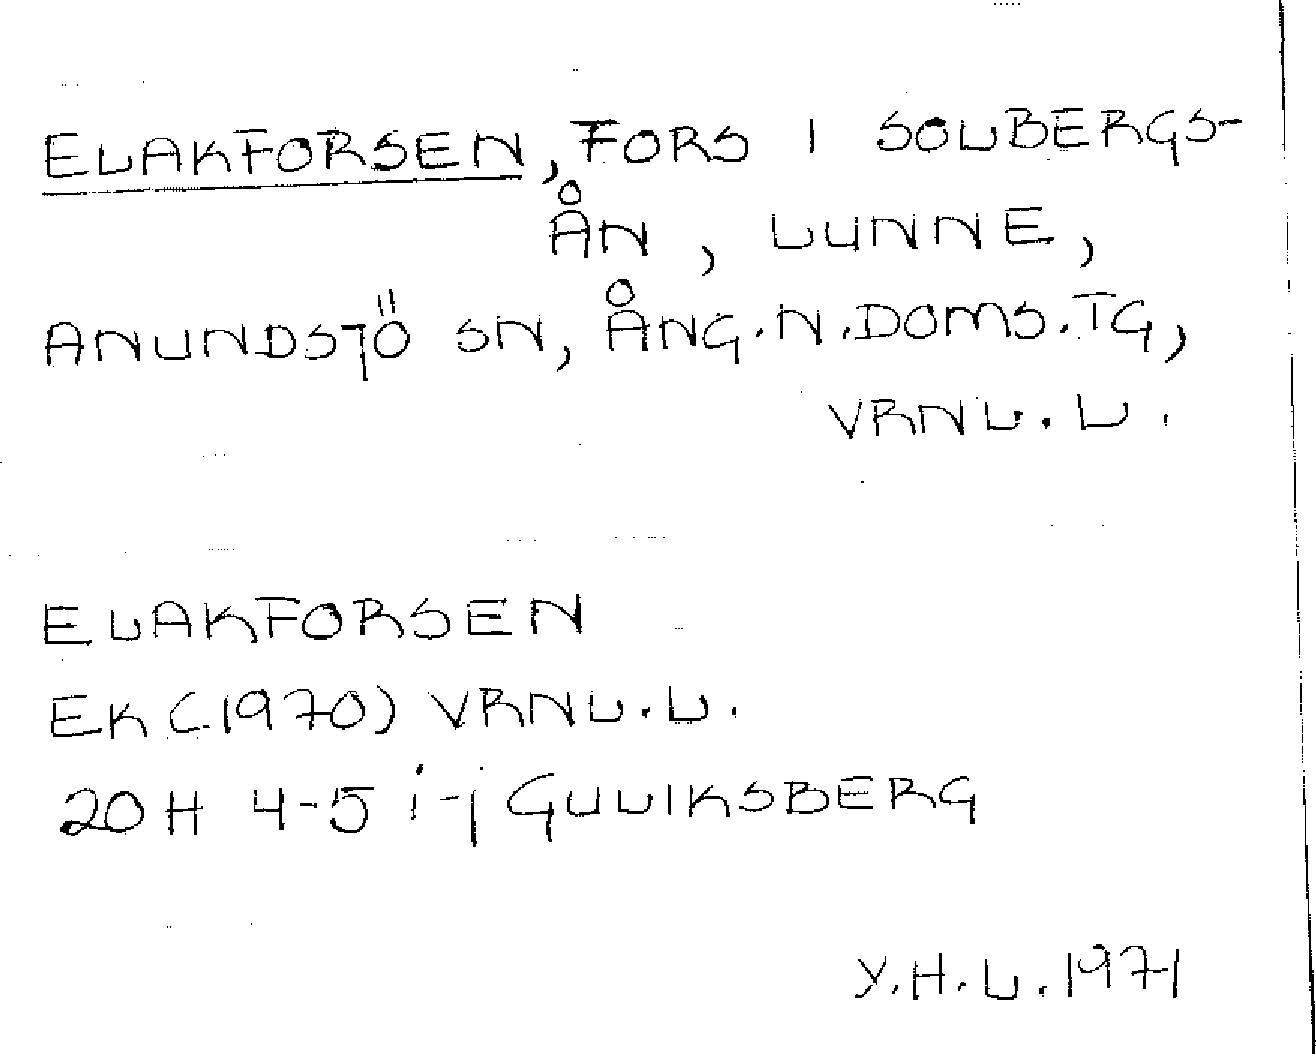 ELAKFORSEN, FORS I SOLBERGS-
ÅN, LUNNE,
ANUNDSJÖ SN, ÅNG.N.DOMS.TG,
VRNL.L.
ELAKFORSEN
EK (1970) VRNL.L.
20H 4-5 i-j GULLIKSBERG
Y.H.L.1971